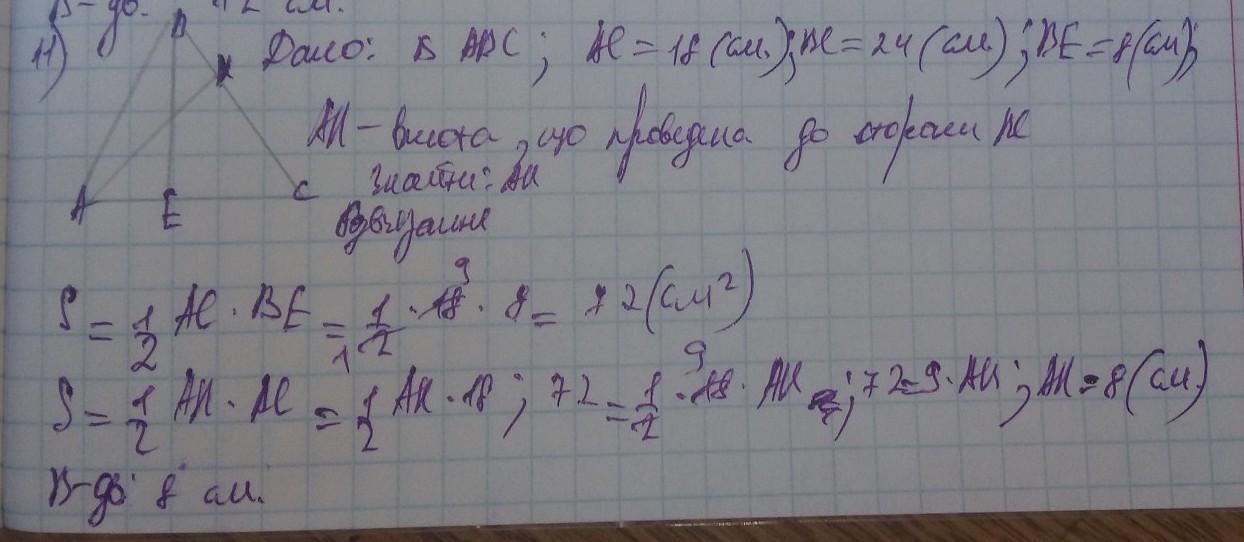 В-дь: 12 см.
11) Дано: Δ ABC; AC = 18 (см.); BC = 24 (см.); BE = 8 (см);
AK – висота, що проведена до сторони BC
Знайти: AK
Розв'язання
B
K
A
E
C
S = 1/2 AC · BE = 1/2 · 18 · 8 = 72 (см²)
9
1
S = 1/2 AK · AC = 1/2 AK · 18; 72 = 1/2 · 18 · AK; 72 = 9 · AK; AK = 8 (см.)
9
В-дь: 8 см.